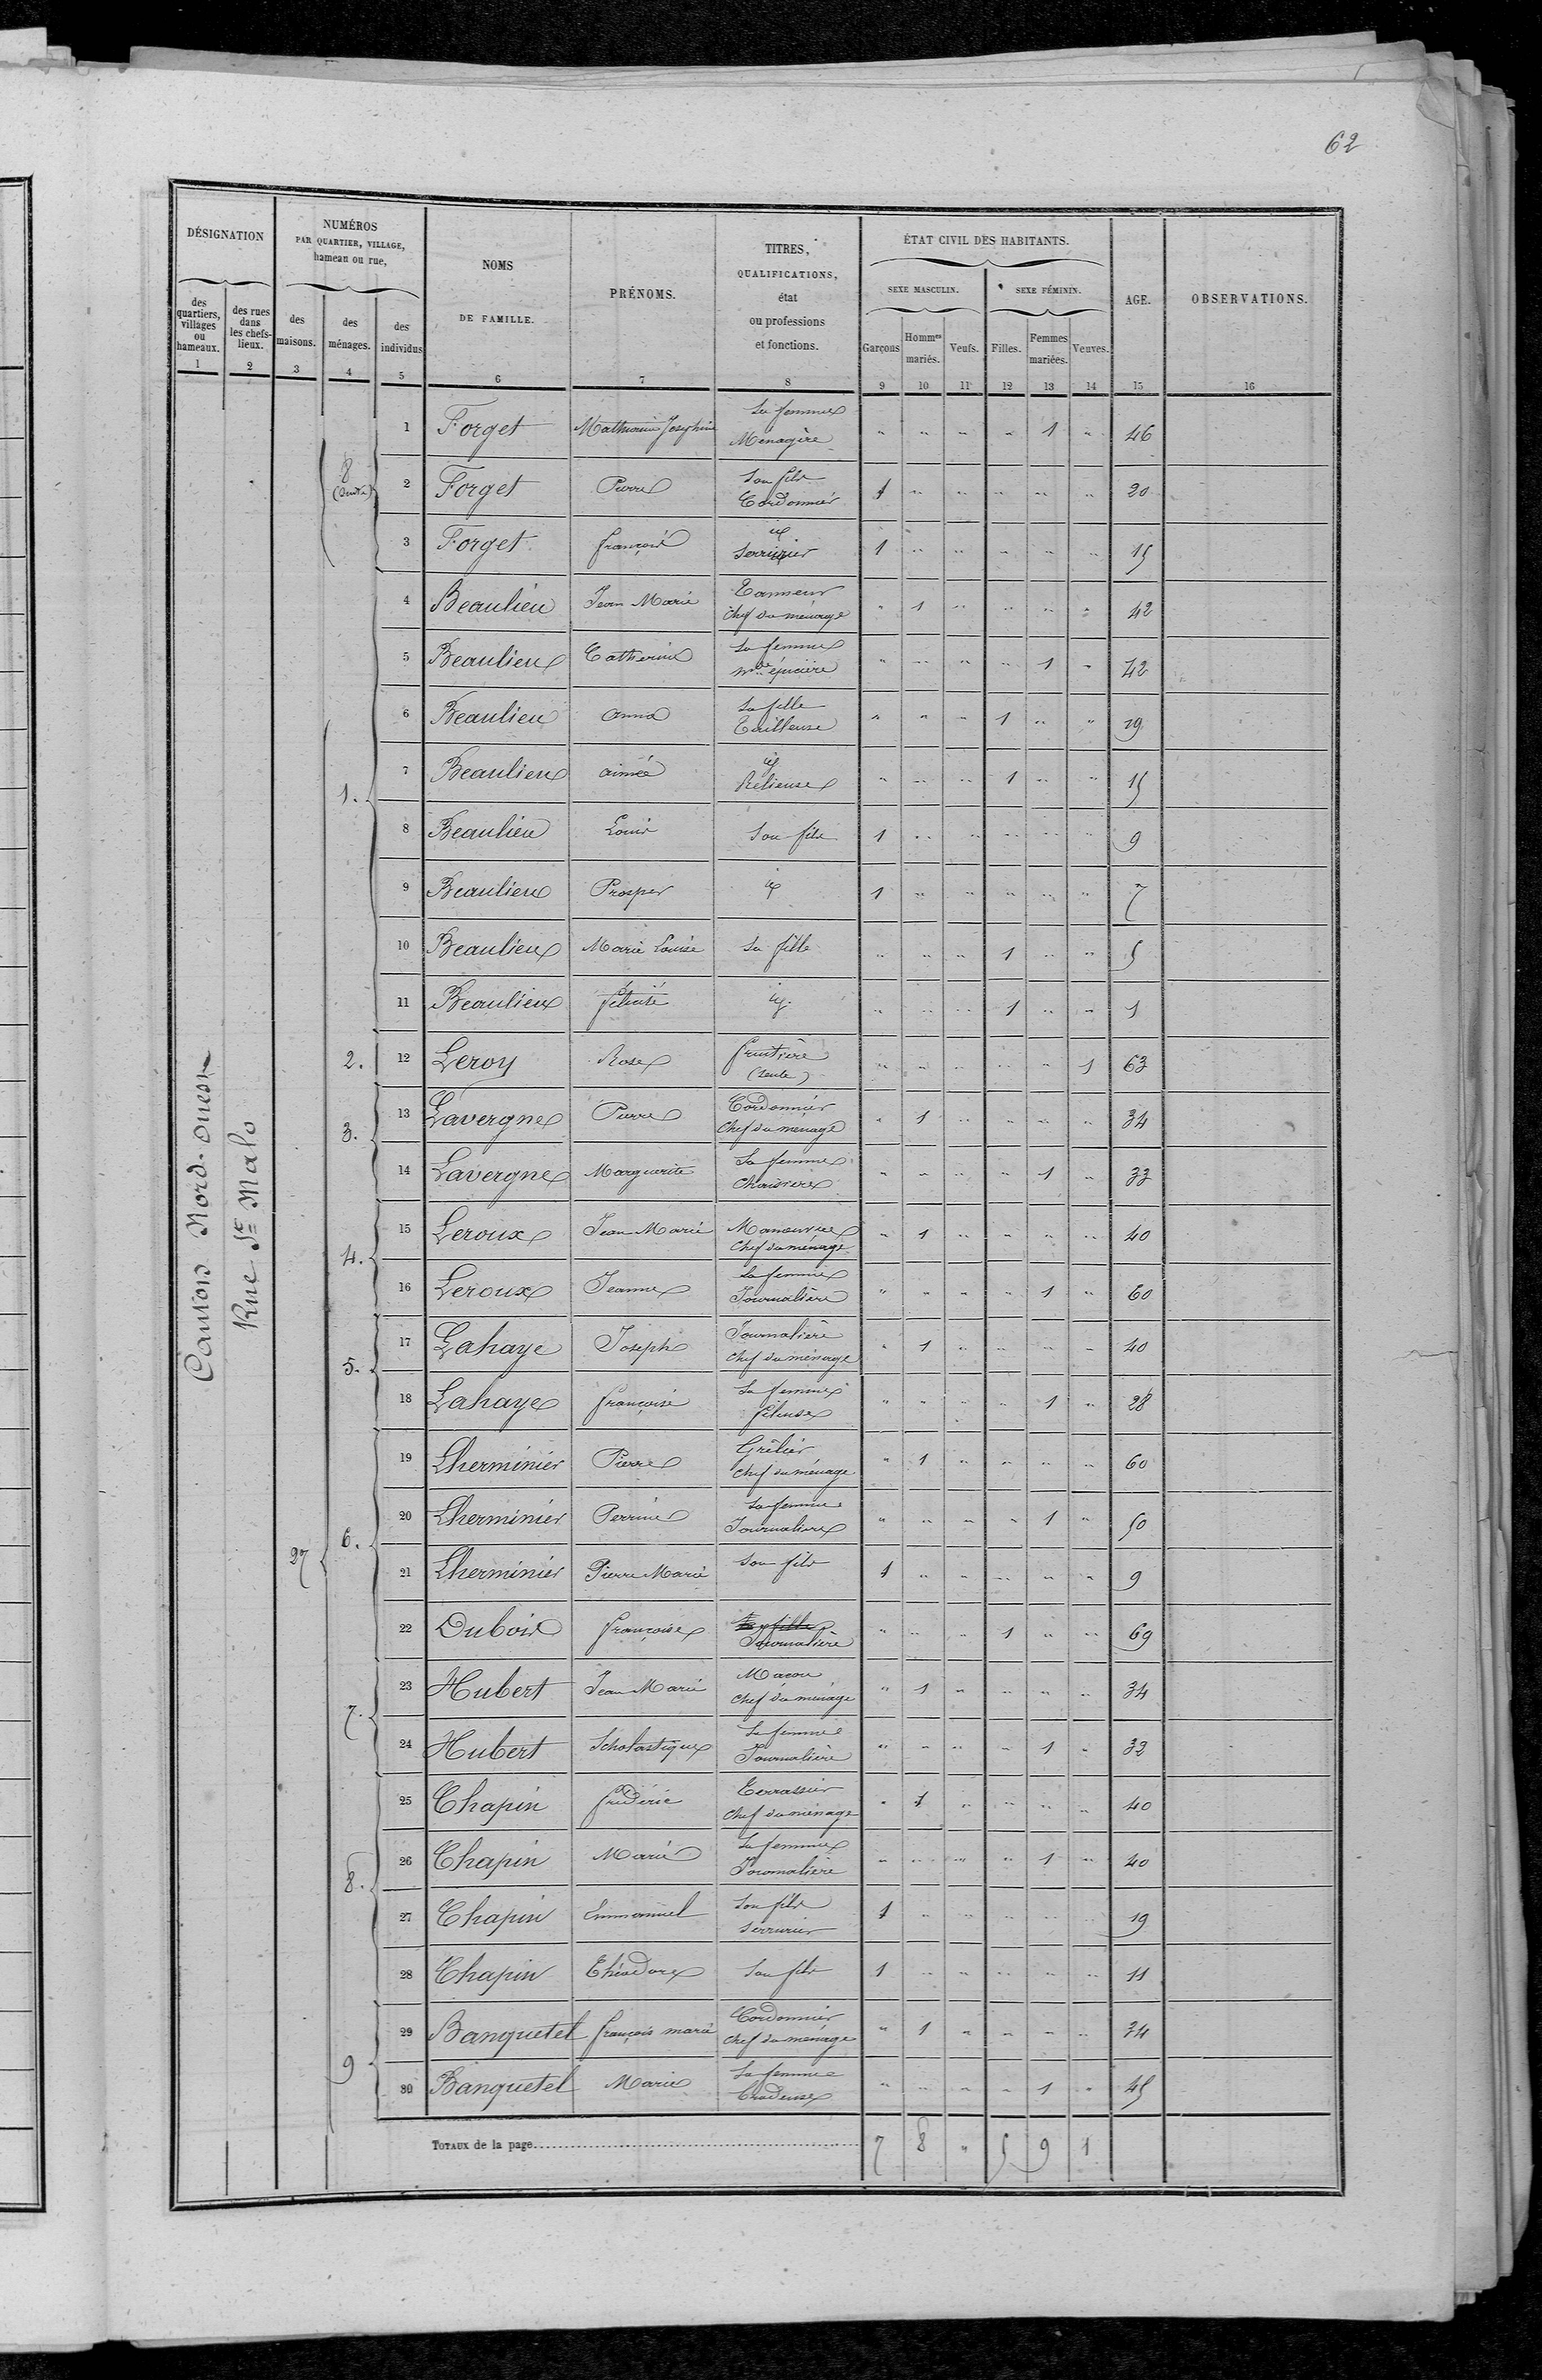 62
DÉSIGNATION
NUMÉROS
PAR QUARTIER, VILLAGE,
hameau ou rue,
NOMS
DE FAMILLE.
PRÉNOMS.
TITRES,
QUALIFICATIONS,
état
ou professions
et fonctions.
ÉTAT CIVIL DES HABITANTS.
SEXE MASCULIN.
SEXE FÉMININ.
AGE.
OBSERVATIONS.
des quartiers, villages ou hameaux.
des rues dans les chefs-lieux.
des maisons.
des ménages.
des individus
Garçons
Hommes mariés.
Veufs.
Filles.
Femmes mariées.
Veuves.
1 2 3 4 5 6 7 8 9 10 11 12 13 14 15 16
Canton Nord-Ouest
Rue St Malo
27
8
(suite)
1 Forget Mathurine Joséphine Sa femme Ménagère " " " " 1 " 46
2 Forget Pierre Son fils Cordonnier 1 " " " " " 20
3 Forget françois id Serrurier 1 " " " " " 15
1.
4 Beaulieu Jean Marie Tanneur Chef du ménage " 1 " " " " 42
5 Beaulieu Catherine Sa femme mde épicière " " " " 1 " 42
6 Beaulieu anna Sa fille Tailleuse " " " 1 " " 19
7 Beaulieu aimée id Relieuse " " " 1 " " 15
8 Beaulieu Louis Son fils 1 " " " " " 9
9 Beaulieu Prosper id 1 " " " " " 7
10 Beaulieu Marie Louise Sa fille " " " 1 " " 5
11 Beaulieu félicité id. " " " 1 " " 1
2.
12 Leroy Rose fruitière (seule) " " " " " 1 63
3.
13 Lavergne Pierre Cordonnier Chef du ménage " 1 " " " " 34
14 Lavergne Marguerite Sa femme Chaisière " " " " 1 " 33
4.
15 Leroux Jean Marie Manoeuvre Chef du ménage " 1 " " " " 40
16 Leroux Jeanne Sa femme Journalière " " " " 1 " 60
5.
17 Lahaye Joseph Journalière chef du ménage " 1 " " " " 40
18 Lahaye françoise Sa femme fileuse " " " " 1 " 28
6.
19 Lherminier Pierre Grêlier chef du ménage " 1 " " " " 60
20 Lherminier Perrine Sa femme Journalière " " " " 1 " 50
21 Lherminier Pierre Marie Son fils 1 " " " " " 9
22 Dubois françoise Sa fille Journalière " " " 1 " " 69
7.
23 Hubert Jean Marie Maçon chef du ménage " 1 " " " " 34
24 Hubert Scholastique Sa femme Journalière " " " " 1 " 32
8.
25 Chapin frédéric Terrassier chef du ménage " 1 " " " " 40
26 Chapin Marie Sa femme Journalière " " " " 1 " 40
27 Chapin Emmanuel Son fils serrurier 1 " " " " " 19
28 Chapin Théodore Son fils 1 " " " " " 11
9
29 Banquetel françois marie Cordonnier chef du ménage " 1 " " " " 34
30 Banquetel Marie Sa femme Brodeuse " " " " 1 " 45
TOTAUX de la page 7 8 " 5 9 1